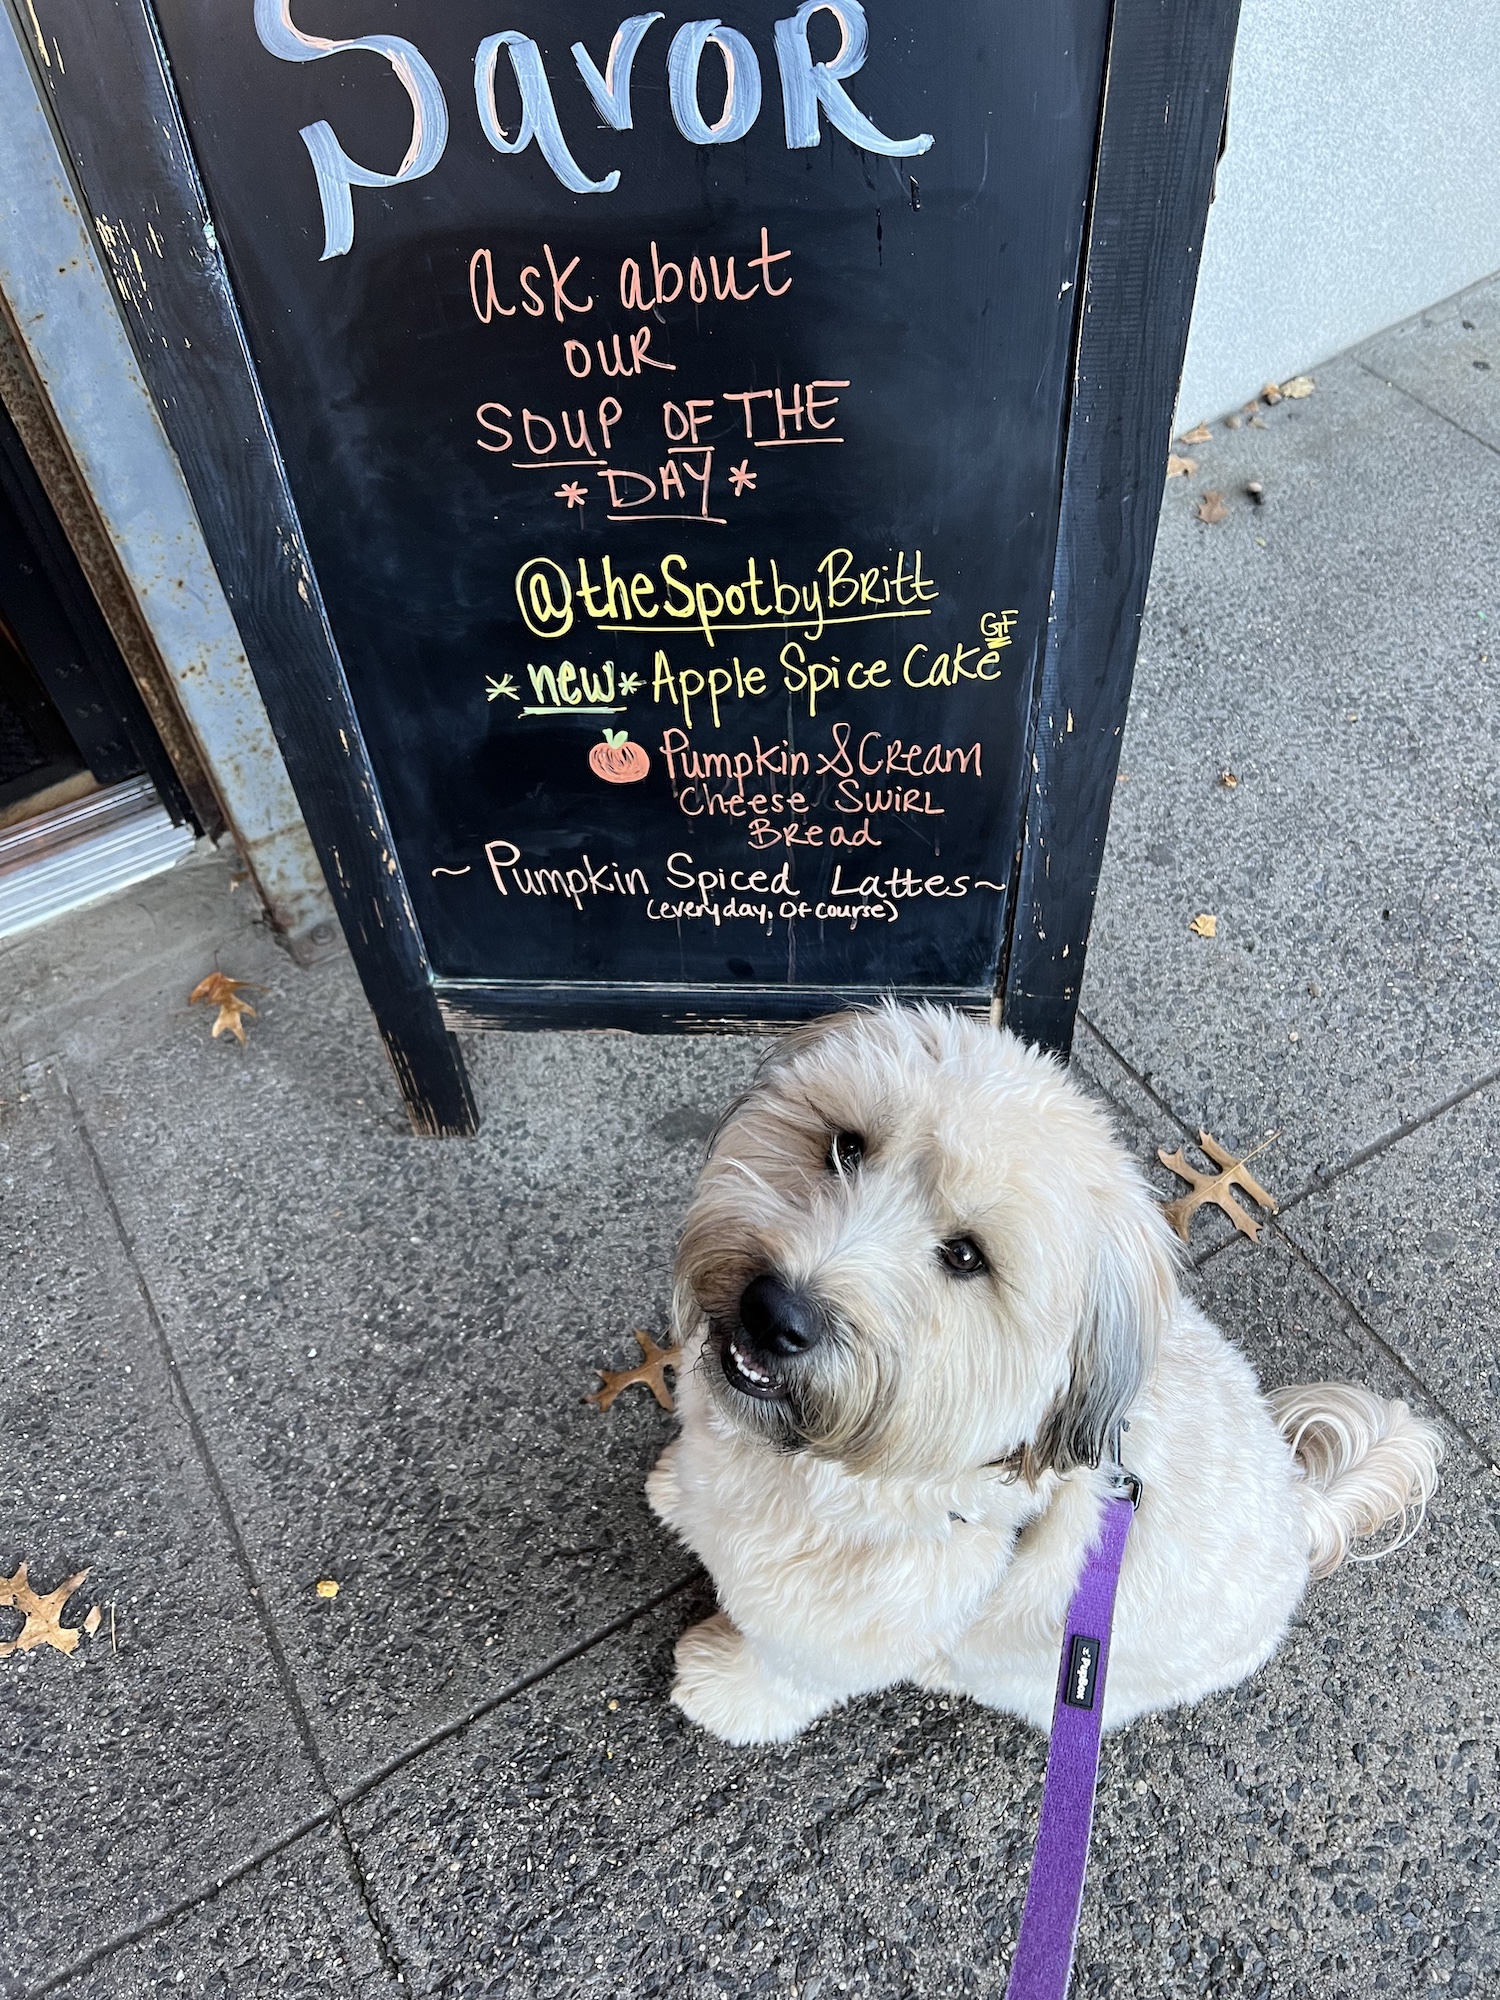 Savor
ask about
our
SOUP OF THE
* DAY *
@theSpotbyBritt
*new* Apple Spice Cake GF
Pumpkin & Cream
Cheese Swirl
Bread
~ Pumpkin Spiced Lattes ~
(everyday, of course)